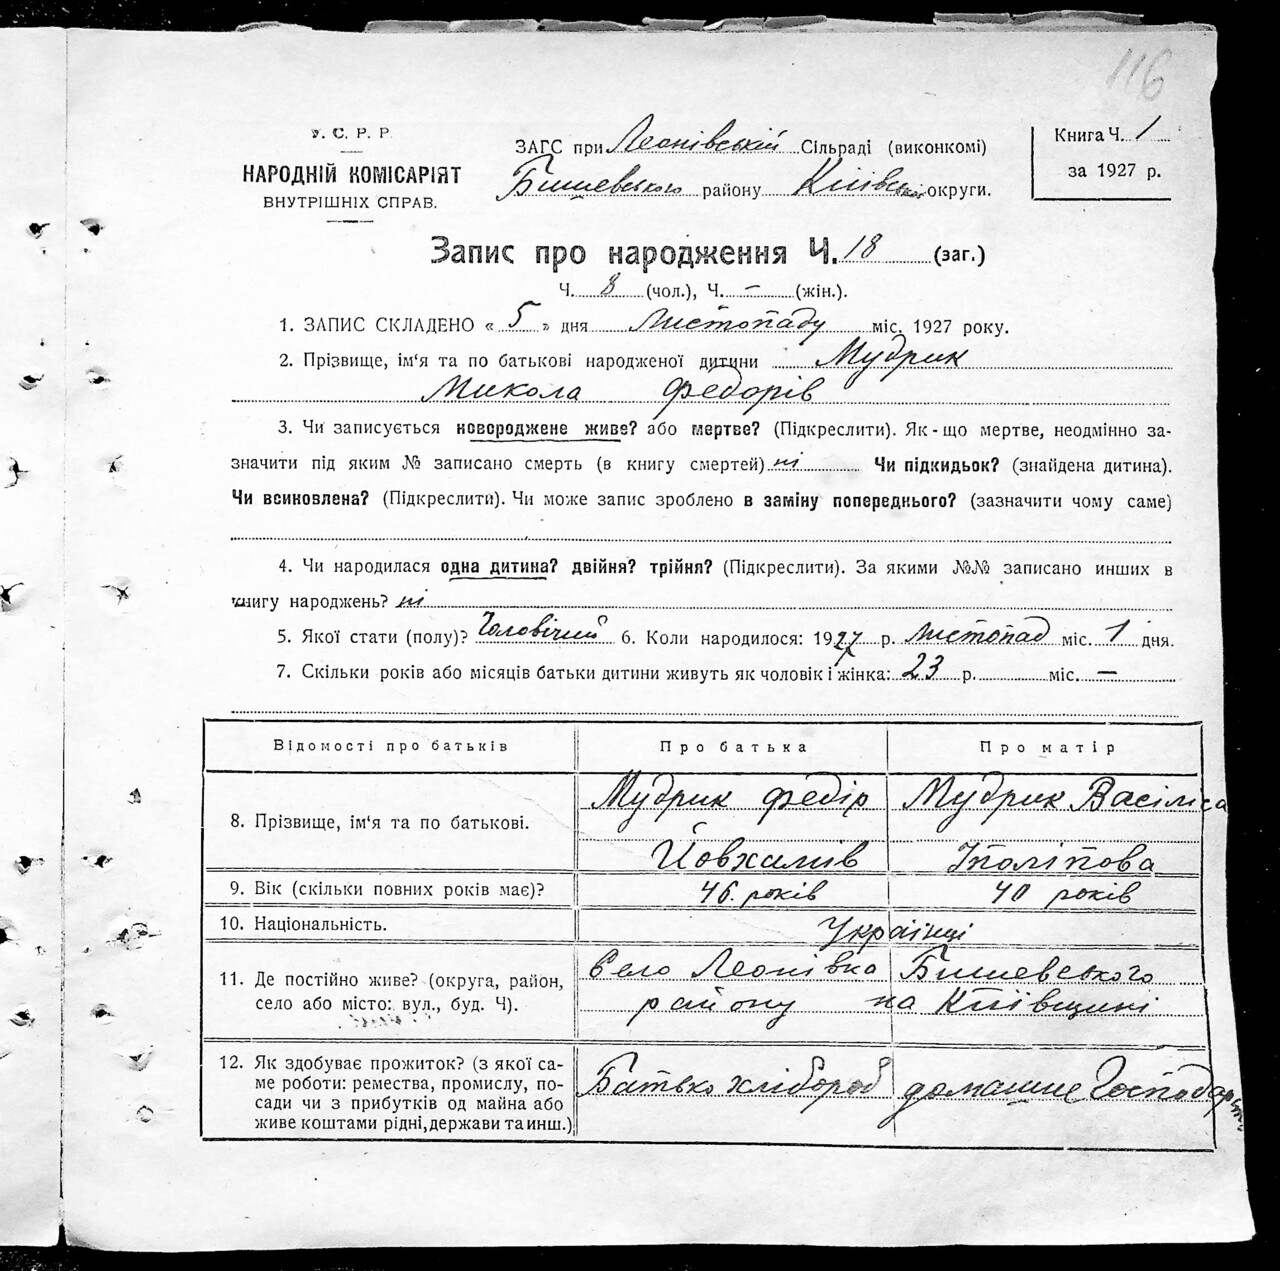 116
У. С. Р. Р.
НАРОДНІЙ КОМІСАРІЯТ
ВНУТРІШНІХ СПРАВ.
ЗАГС при Леонівській Сільраді (виконкомі)
Бишевського району Київської округи.
Книга Ч. 1
за 1927 р.
Запис про народження Ч. 18 (заг.)
Ч. 8 (чол.), Ч. – (жін.).
1. ЗАПИС СКЛАДЕНО « 5 » дня Листопаду міс. 1927 року.
2. Прізвище, ім‘я та по батькові народженої дитини Мудрик
Микола Федорів
3. Чи записується новороджене живе? або мертве? (Підкреслити). Як-що мертве, неодмінно за-
значити під яким № записано смерть (в книгу смертей) ні Чи підкидьок? (знайдена дитина).
Чи всиновлена? (Підкреслити). Чи може запис зроблено в заміну попереднього? (зазначити чому саме)
4. Чи народилася одна дитина? двійня? трійня? (Підкреслити). За якими №№ записано инших в
книгу народжень? ні
5. Якої стати (полу)? Чоловічий 6. Коли народилося: 1927 р. Листопад міс. 1 дня.
7. Скільки років або місяців батьки дитини живуть як чоловік і жінка: 23 р. міс. —
Відомості про батьків Про батька Про матір
8. Прізвище, ім‘я та по батькові. Мудрик Федір Мудрик Васіліса
Йовхимів Іполітова
9. Вік (скільки повних років має)? 46. років 40 років
10. Національність. Українці
11. Де постійно живе? (округа, район, Село Леонівка Бишевського
село або місто: вул., буд. Ч). району на Київщині
12. Як здобуває прожиток? (з якої са- Батько хлібороб домашнє Господарство
ме роботи: ремества, промислу, по-
сади чи з прибутків од майна або
живе коштами рідні, держави та инш.)